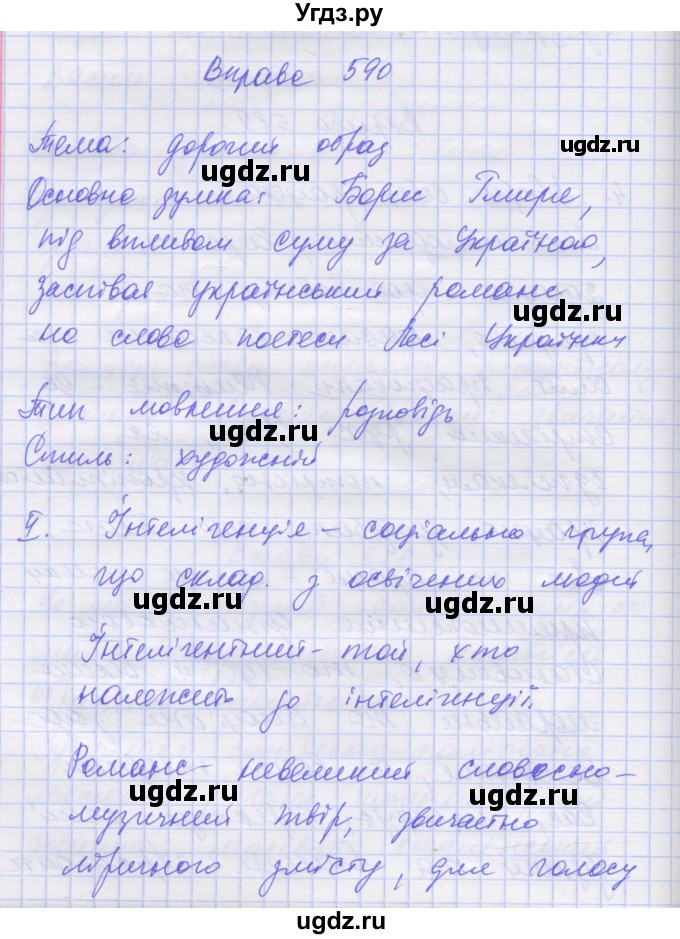 Угдз.ру
Вправа 590
Тема: дорогий образ
ugdz.ru
Основна думка: Борис Гмиря,
під впливом суму за Україною,
заспівав український романс
ugdz.ru
на слова поетеси Лесі Українки
Тип мовлення: розповідь
ugdz.ru
Стиль: художній
І. Інтелігенція – соціальна група,
що склад. з освічених людей
ugdz.ru ugdz.ru
Інтелігентний – той, хто
належить до інтелігенції.
Романс – невеликий словесно-
ugdz.ru ugdz.ru
музичний твір, звичайно
ліричного змісту, для голосу
ugdz.ru